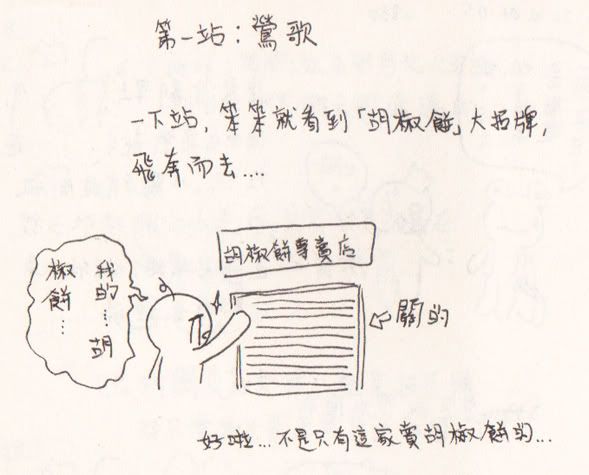 第一站：鶯歌
一下站，笨笨就看到「胡椒餅」大招牌，
飛奔而去....
胡椒餅專賣店
我的…胡
椒餅…
關的
好啦…不是只有這家賣胡椒餅的…